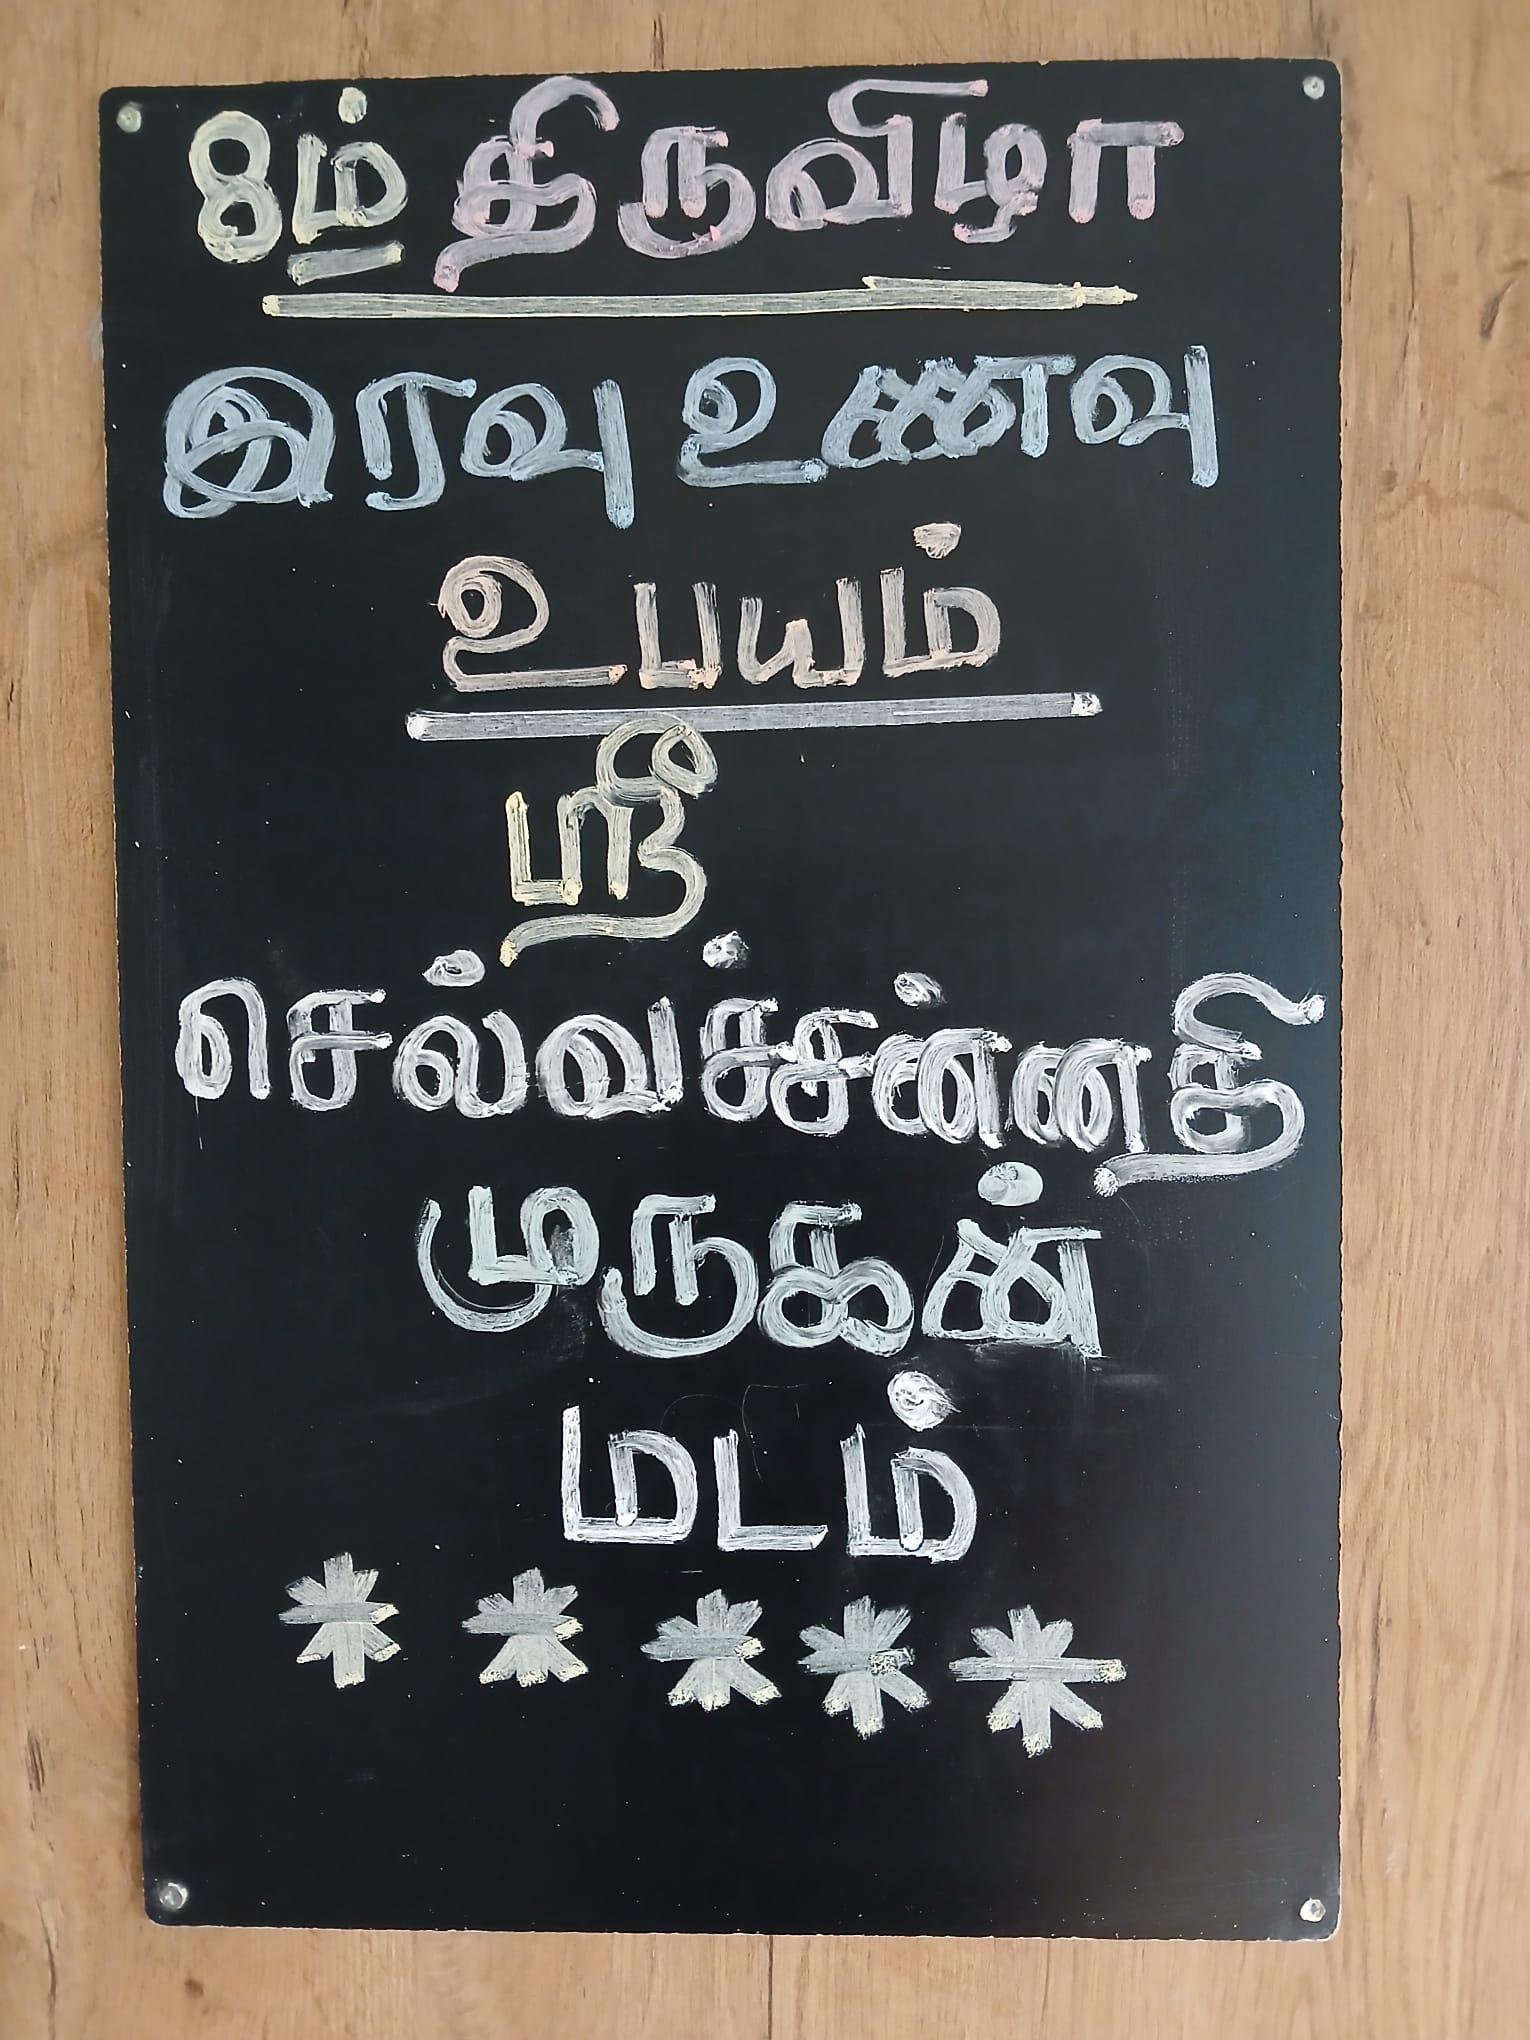 8ம் திருவிழா
இரவு உணவு
உபயம்
ஸ்ரீ
செல்வச்சன்னதி
முருகன்
மடம்
*****